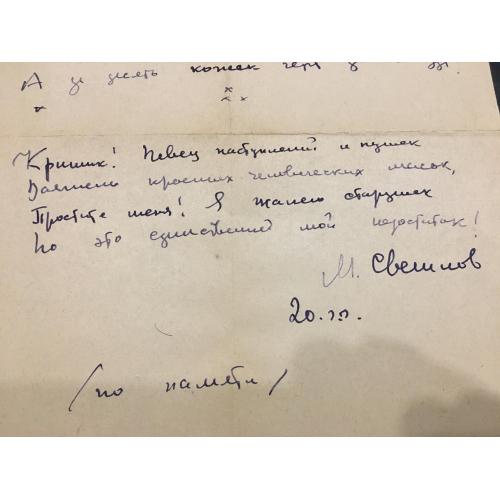 А за десять копеек
х
х
х х
Критик! Певец наступлений и пушек
Ваятель красных человеческих масок,
Простите меня! Я жалею старушек
Но это единственный мой недостаток!
М. Светлов
20.гг.
/по памяти/